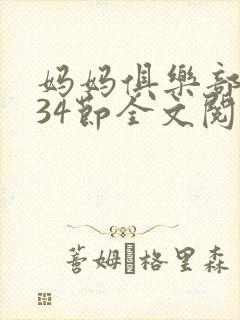 妈妈俱樂部
34節全文閱
蕾姆·格里森